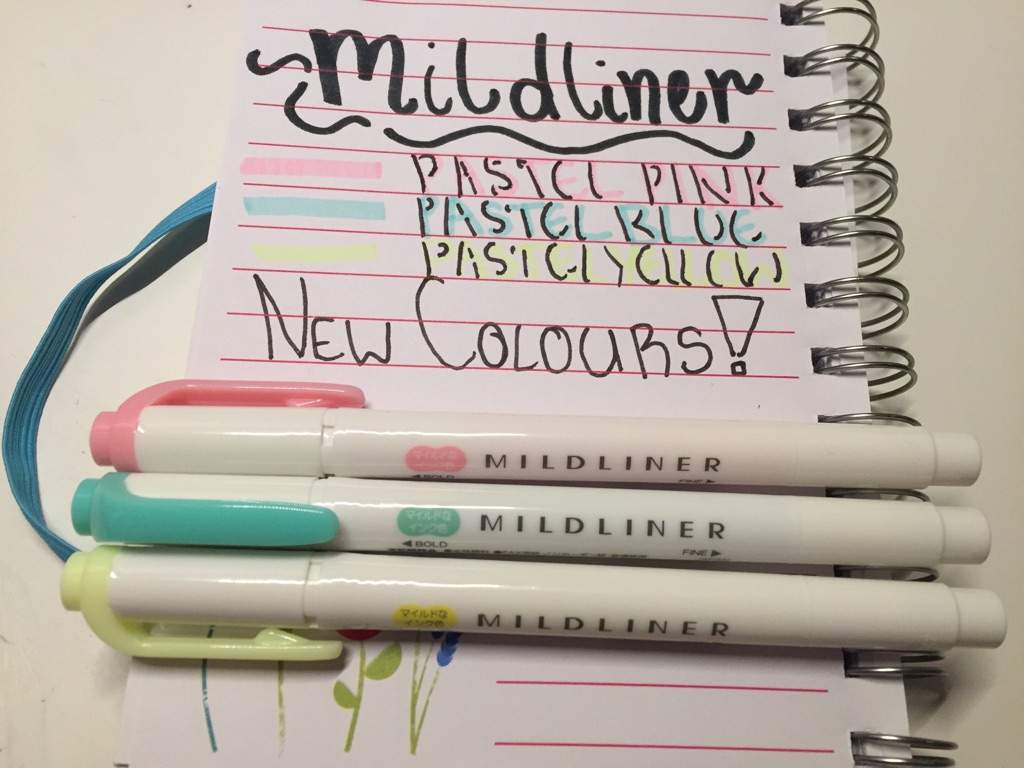 Mildliner
PASTEL PINK
PASTEL BLUE
PASTEL YELLOW
NEW COLOURS!
マイルドな
インク色
MILDLINER
◀BOLD
FINE▶
マイルドな
インク色
MILDLINER
◀BOLD
FINE▶
マイルドな
インク色
MILDLINER